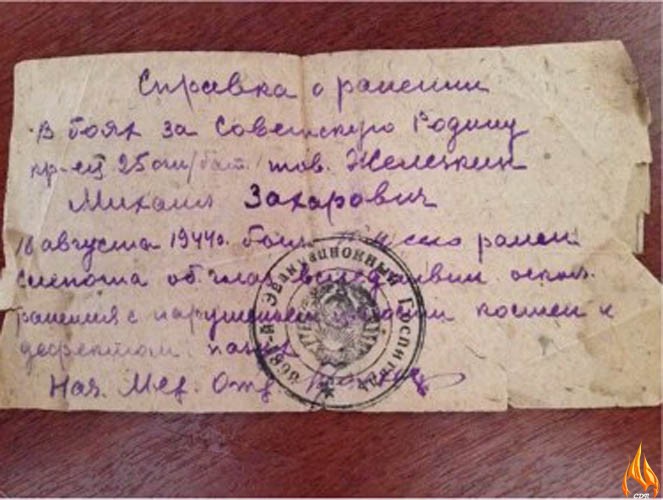 Справка о ранении
В боях за Советскую Родину
кр-ец 25 от/бат. тов. Железкин
Михаил Захарович
16 августа 1944г. был ранен
слепота об. глаз вследствии оскол.
ранения с нарушением костей и
дефектом
Нач. Мед. Отд.
Эвакуационный Госпиталь